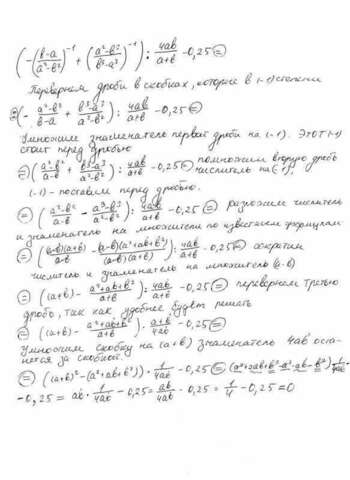 (-((b-a)/(a²-b²))⁻¹ + ((a²-b²)/(b³-a³))⁻¹) : 4ab/(a+b) - 0,25 =
Перевернем дроби в скобках, которые в (-1) степени
= (-(a²-b²)/(b-a) + (b³-a³)/(a²-b²)) : 4ab/(a+b) - 0,25 =
Умножим знаменатель первой дроби на (-1). Этот (-1)
стоит перед дробью
= ((a²-b²)/(a-b) + (b³-a³)/(a²-b²)) : 4ab/(a+b) - 0,25 = помножим вторую дробь
числитель на (-1),
(-1) - поставим перед дробью.
= ((a²-b²)/(a-b) - (a³-b³)/(a²-b²)) : 4ab/(a+b) - 0,25 = разложим числитель
и знаменатель на множители по известным формулам
= ((a-b)(a+b)/(a-b) - (a-b)(a²+ab+b²)/((a-b)(a+b))) : 4ab/(a+b) - 0,25 = сократим
числитель и знаменатель на множитель (a-b)
= ((a+b) - (a²+ab+b²)/(a+b)) : 4ab/(a+b) - 0,25 = перевернем третью
дробь, так как удобнее будет решать
= ((a+b) - (a²+ab+b²)/(a+b)) · (a+b)/4ab - 0,25 =
Умножим скобку на (a+b) знаменатель 4ab оста-
нется за скобкой.
= ((a+b)² - (a²+ab+b²)) · 1/4ab - 0,25 = (a²+2ab+b²-a²-ab-b²) · 1/4ab
- 0,25 = ab · 1/4ab - 0,25 = ab/4ab - 0,25 = 1/4 - 0,25 = 0